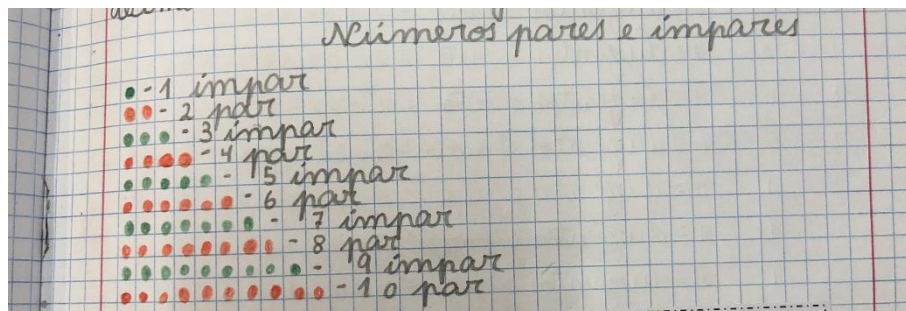 Números pares e impares
- 1 impar
- 2 par
- 3 impar
- 4 par
- 5 impar
- 6 par
- 7 impar
- 8 par
- 9 impar
- 10 par